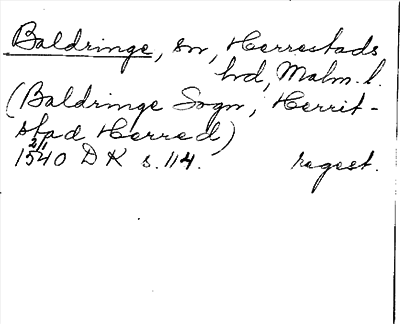 Baldringe, sn, Herrestads
hd, Malm. l.
(Baldringe Sogn, Herrit-
stad Herred)
2/1
1540 DK s. 114. regest.